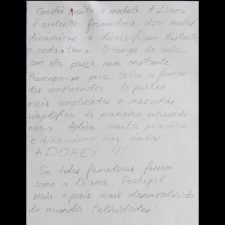 Gostei muito do modelo. A Diana
é excelente formadora. Usa muitas
dinâmicas e diversificou bastante
o cada tema. O tempo da aula
com ela passa num instante.
Preocupa-se para todos os formandos
compreender. As partes
mais complicadas e massudas
simplifica de maneira extraordi-
nária. Aplica muita practica
e dinamismo nas aulas
ADOREI !!!
Se todas formadoras fossem
como a Diana, Portugal
seria o país mais desenvolvido
do mundo. Felicidades